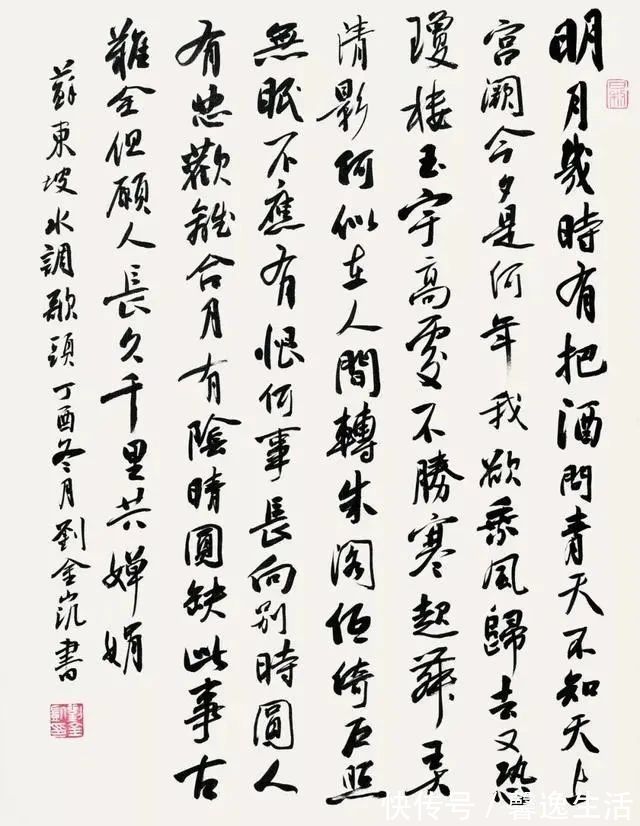 明月幾時有把酒問青天不知天上
宮闕今夕是何年我欲乘風歸去又恐
瓊樓玉宇高處不勝寒起舞弄
清影何似在人間轉朱閣低綺戶照
無眠不應有恨何事長向別時圓人
有悲歡離合月有陰晴圓缺此事古
難全但願人長久千里共嬋娟
蘇東坡水調歌頭丁酉冬月劉金凱書
快传号 / 馨逸生活